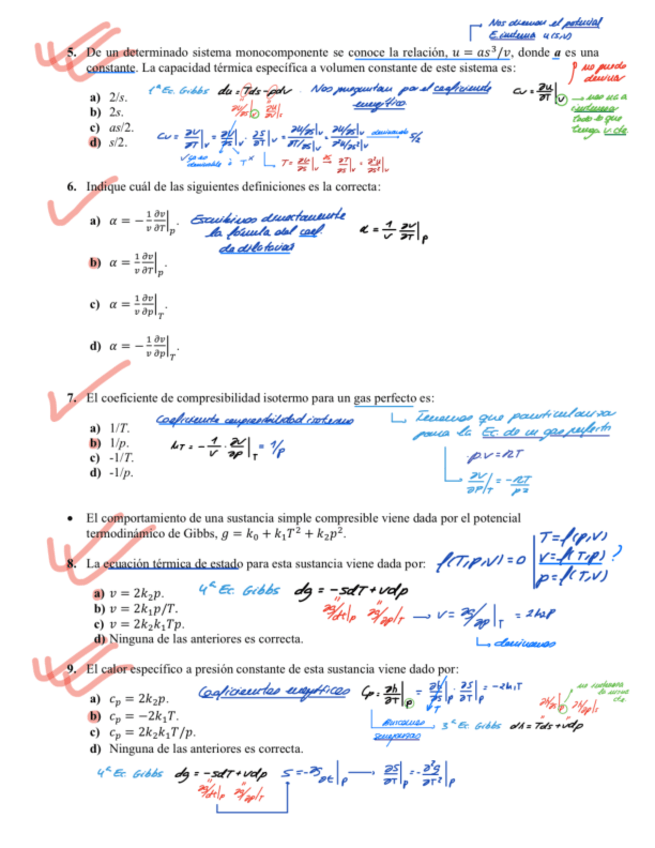 Nos dicen el potencial
E. interna u(s,v)
5. De un determinado sistema monocomponente se conoce la relación, u = as³/v, donde a es una
constante. La capacidad térmica específica a volumen constante de este sistema es:
1ª Ec. Gibbs du = Tds - pdv
Nos preguntan por el coeficiente
energético
cv = ∂u/∂T|v
no puedo
derivar
a) 2/s.
b) 2s.
c) as/2.
d) s/2.
T = ∂u/∂s|v
6. Indique cuál de las siguientes definiciones es la correcta:
a) α = −1/v ∂v/∂T|p.
Escribimos directamente
la fórmula del coef.
de dilatación
α = 1/v ∂v/∂T|p
b) α = 1/v ∂v/∂T|p.
c) α = 1/v ∂v/∂p|T.
d) α = −1/v ∂v/∂p|T.
7. El coeficiente de compresibilidad isotermo para un gas perfecto es:
Coeficiente compresibilidad isotermo
Tenemos que particularizar
para la Ec. de un gas perfecto
a) 1/T.
b) 1/p.
c) -1/T.
d) -1/p.
kT = -1/v · ∂v/∂p|T = 1/p
pv = RT
∂v/∂p|T = -RT/p²
• El comportamiento de una sustancia simple compresible viene dada por el potencial
termodinámico de Gibbs, g = k₀ + k₁T² + k₂p².
8. La ecuación térmica de estado para esta sustancia viene dada por:
f(T,p,v) = 0
T = f(p,v)
v = f(T,p) ?
p = f(T,v)
a) v = 2k₂p.
b) v = 2k₁p/T.
c) v = 2k₂k₁Tp.
d) Ninguna de las anteriores es correcta.
4ª Ec. Gibbs dg = -sdT + vdp
∂g/∂T|p ∂g/∂p|T → v = ∂g/∂p|T = 2k₂p
derivamos
9. El calor específico a presión constante de esta sustancia viene dado por:
a) cp = 2k₂p.
b) cp = −2k₁T.
c) cp = 2k₂k₁T/p.
d) Ninguna de las anteriores es correcta.
Coeficientes energéticos
cp = ∂h/∂T|p = ∂h/∂s|p · ∂s/∂T|p = -2k₁T
Buscamos
3ª Ec. Gibbs dh = Tds + vdp
4ª Ec. Gibbs dg = -sdT + vdp
∂g/∂T|p ∂g/∂p|T
s = -∂g/∂T|p → ∂s/∂T|p = -∂²g/∂T²|p